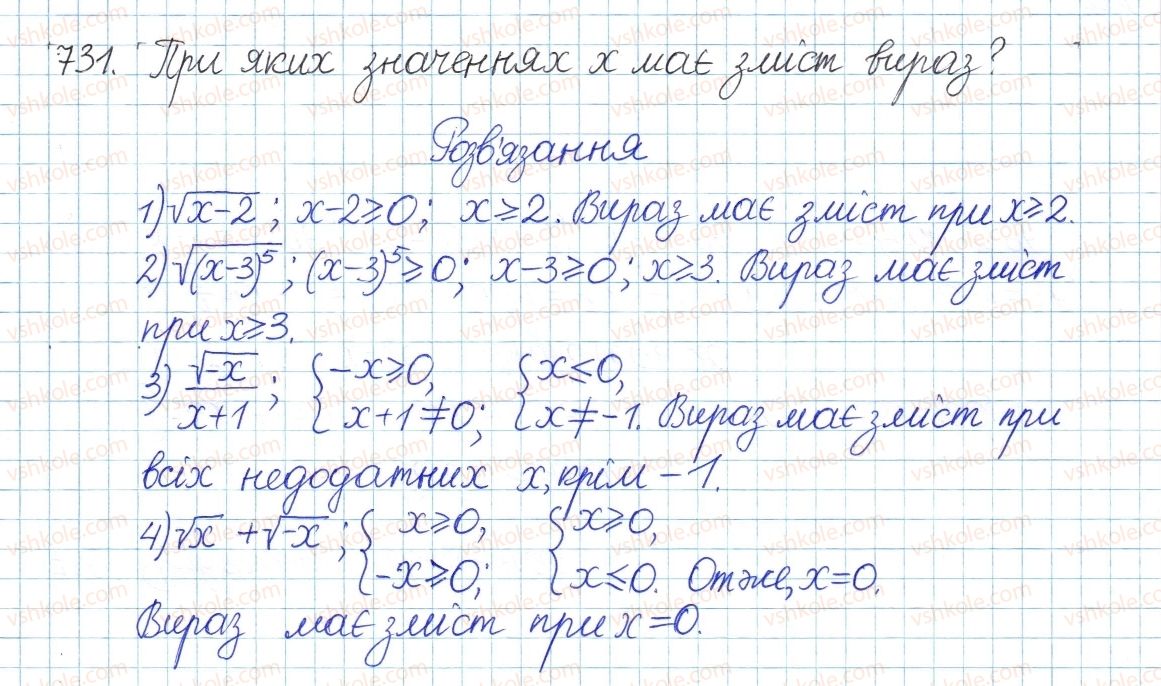 731. При яких значеннях x має зміст вираз?
Розв'язання
1) √(x-2); x-2≥0; x≥2. Вираз має зміст при x≥2.
2) √((x-3)⁵); (x-3)⁵≥0; x-3≥0; x≥3. Вираз має зміст
при x≥3.
3) √(-x)/(x+1); { -x≥0, x+1≠0; { x≤0, x≠-1. Вираз має зміст при
всіх недодатних x, крім -1.
4) √x + √(-x); { x≥0, -x≥0; { x≥0, x≤0. Отже, x=0.
Вираз має зміст при x=0.
vshkole.com